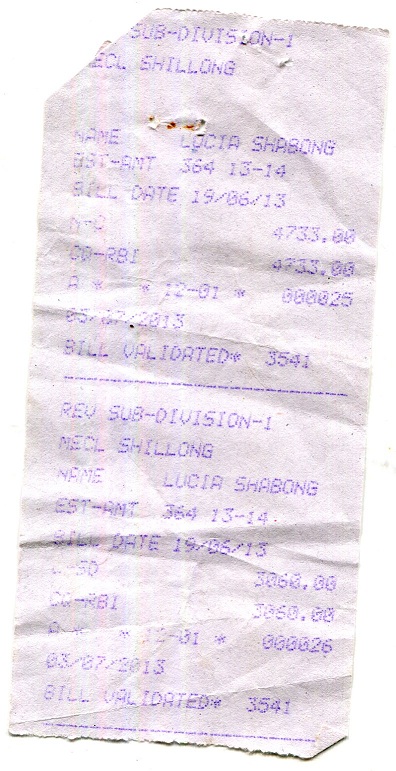 SUB-DIVISION-1
MECL SHILLONG
NAME LUCIA SHABONG
EST-AMT 364 13-14
BILL DATE 19/06/13
4733.00
CQ-RBI 4733.00
A * * 12-01 * 000025
03/07/2013
BILL VALIDATED* 3541
REV SUB-DIVISION-1
MECL SHILLONG
NAME LUCIA SHABONG
EST-AMT 364 13-14
BILL DATE 19/06/13
3060.00
CQ-RBI 3060.00
A * * 12-01 * 000026
03/07/2013
BILL VALIDATED* 3541